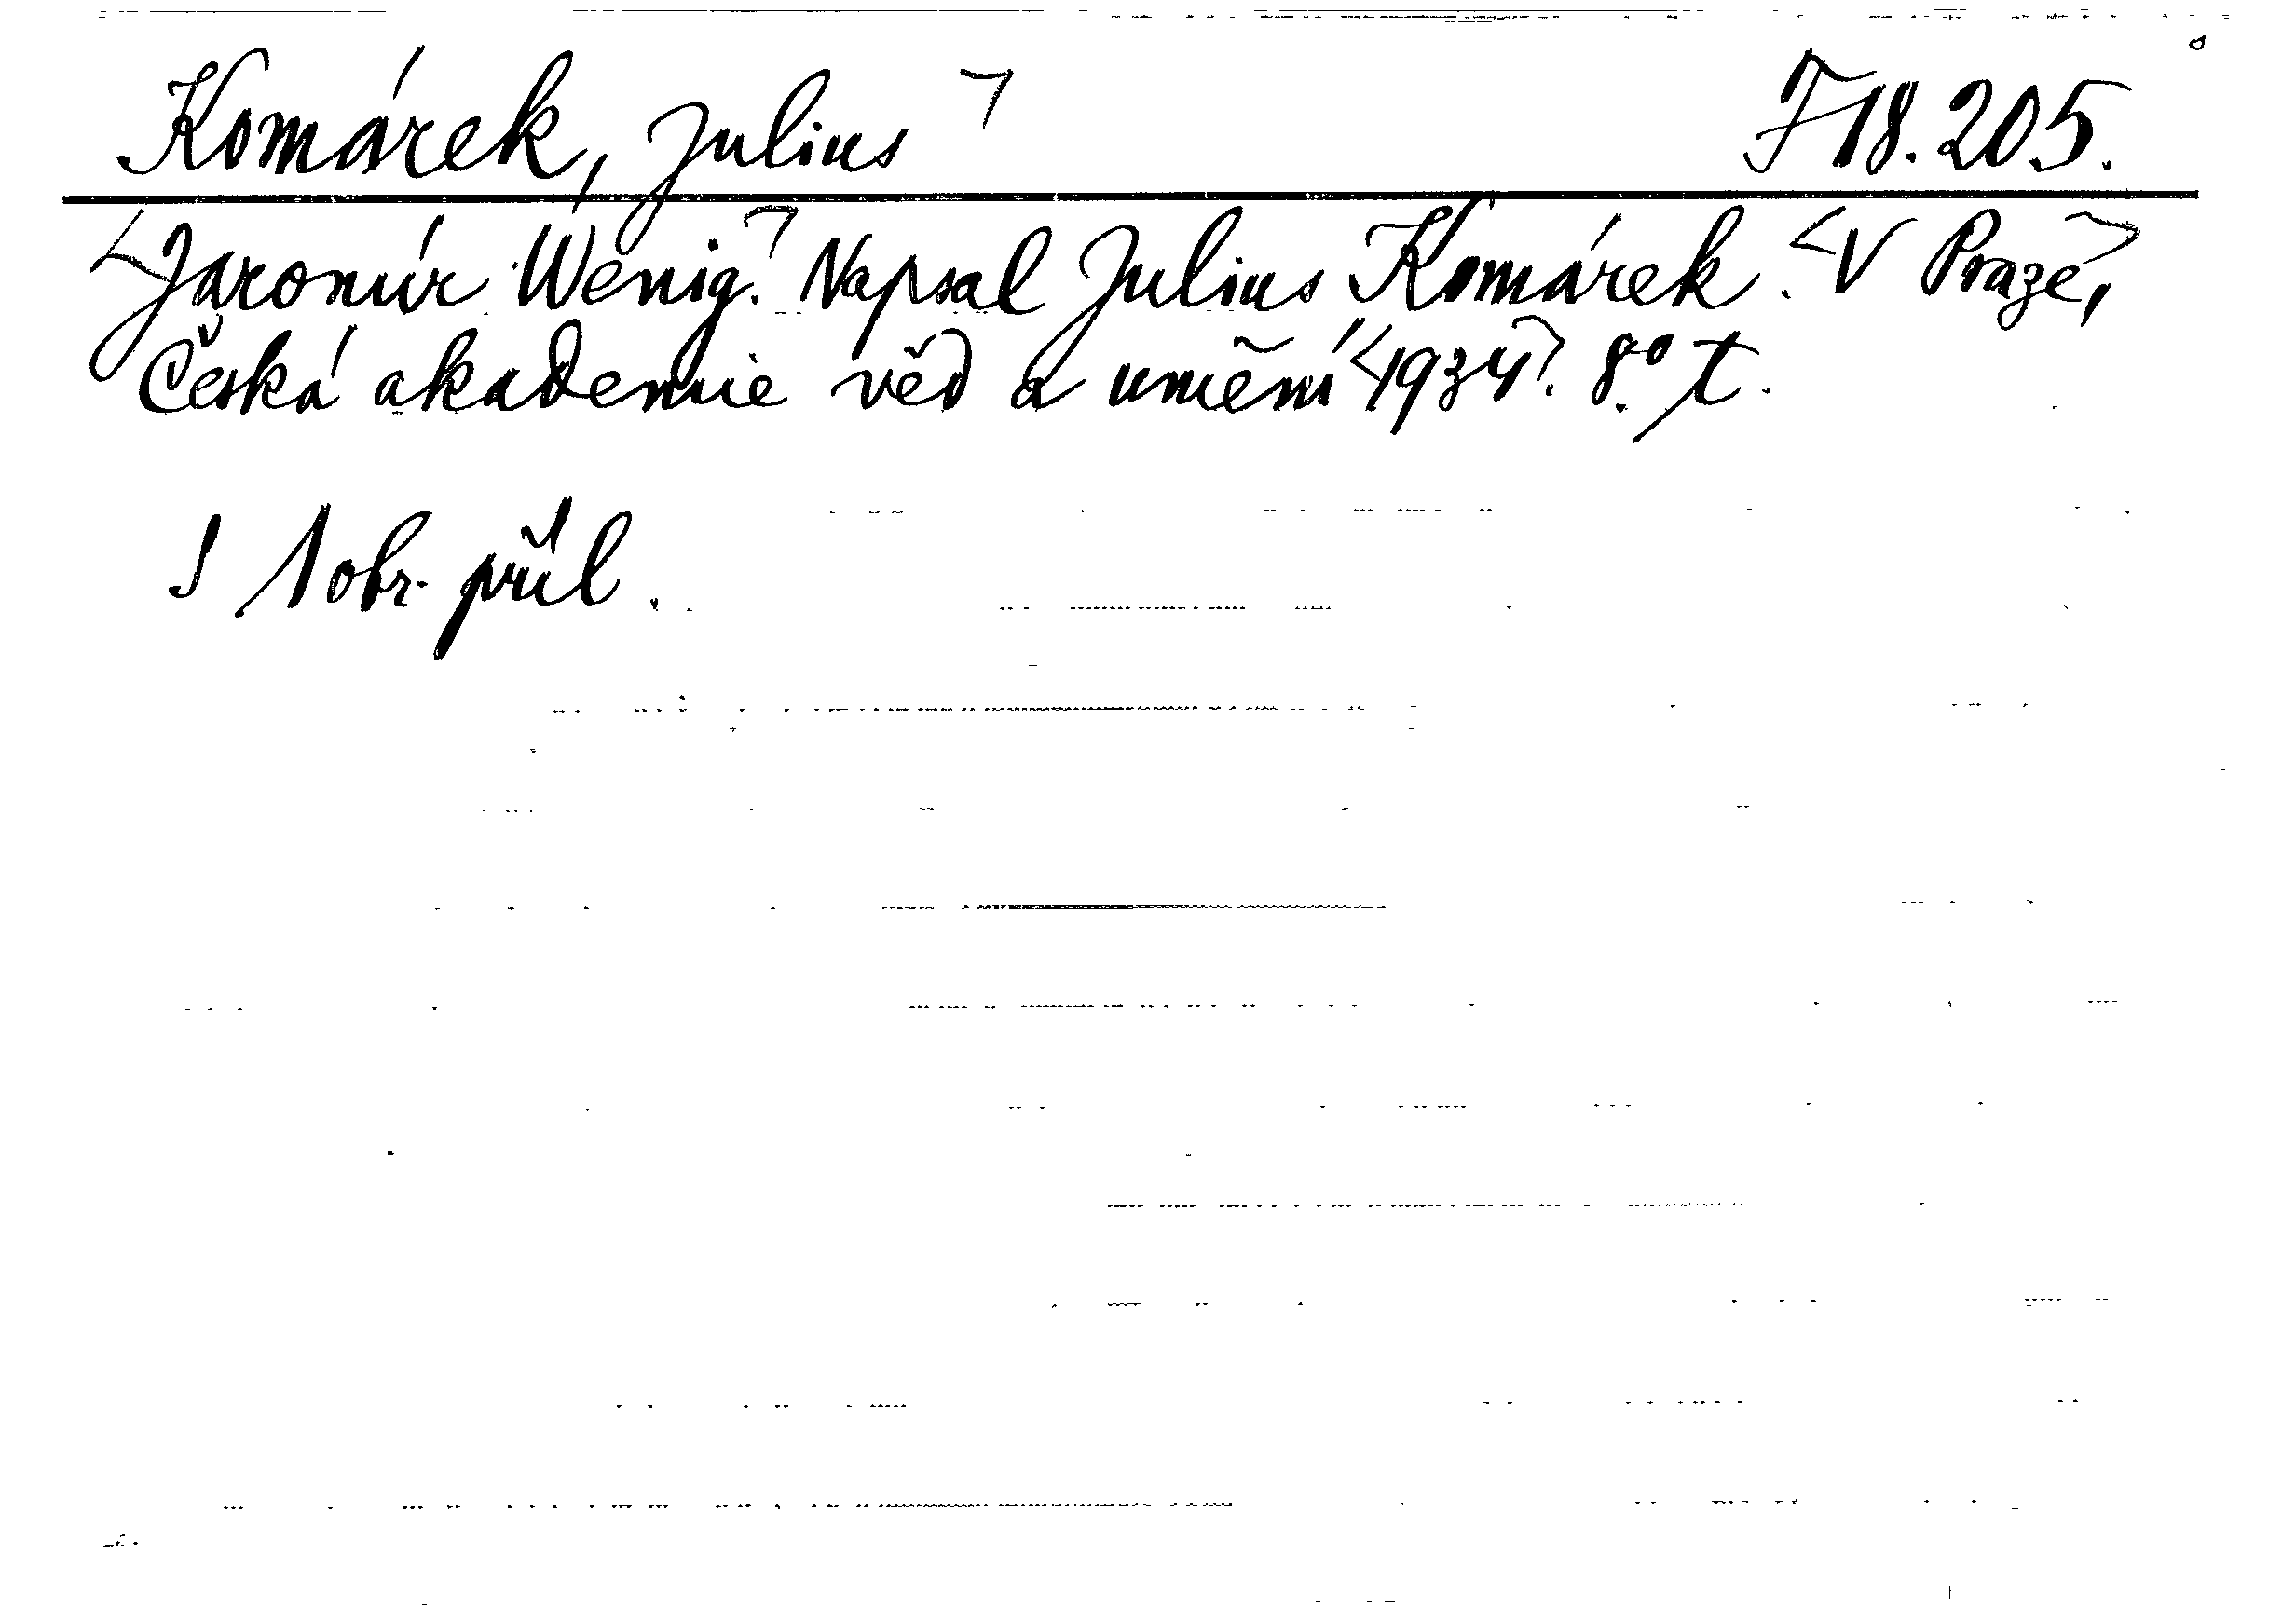 Komárek, Julius ꓶ F 18.205.
<Jaromír Wenig.ꓶ Napsal Julius Komárek. <V Praze,>
Česká akademie věd a umění <1934>. 8.° t.
S 1 obr. příl.